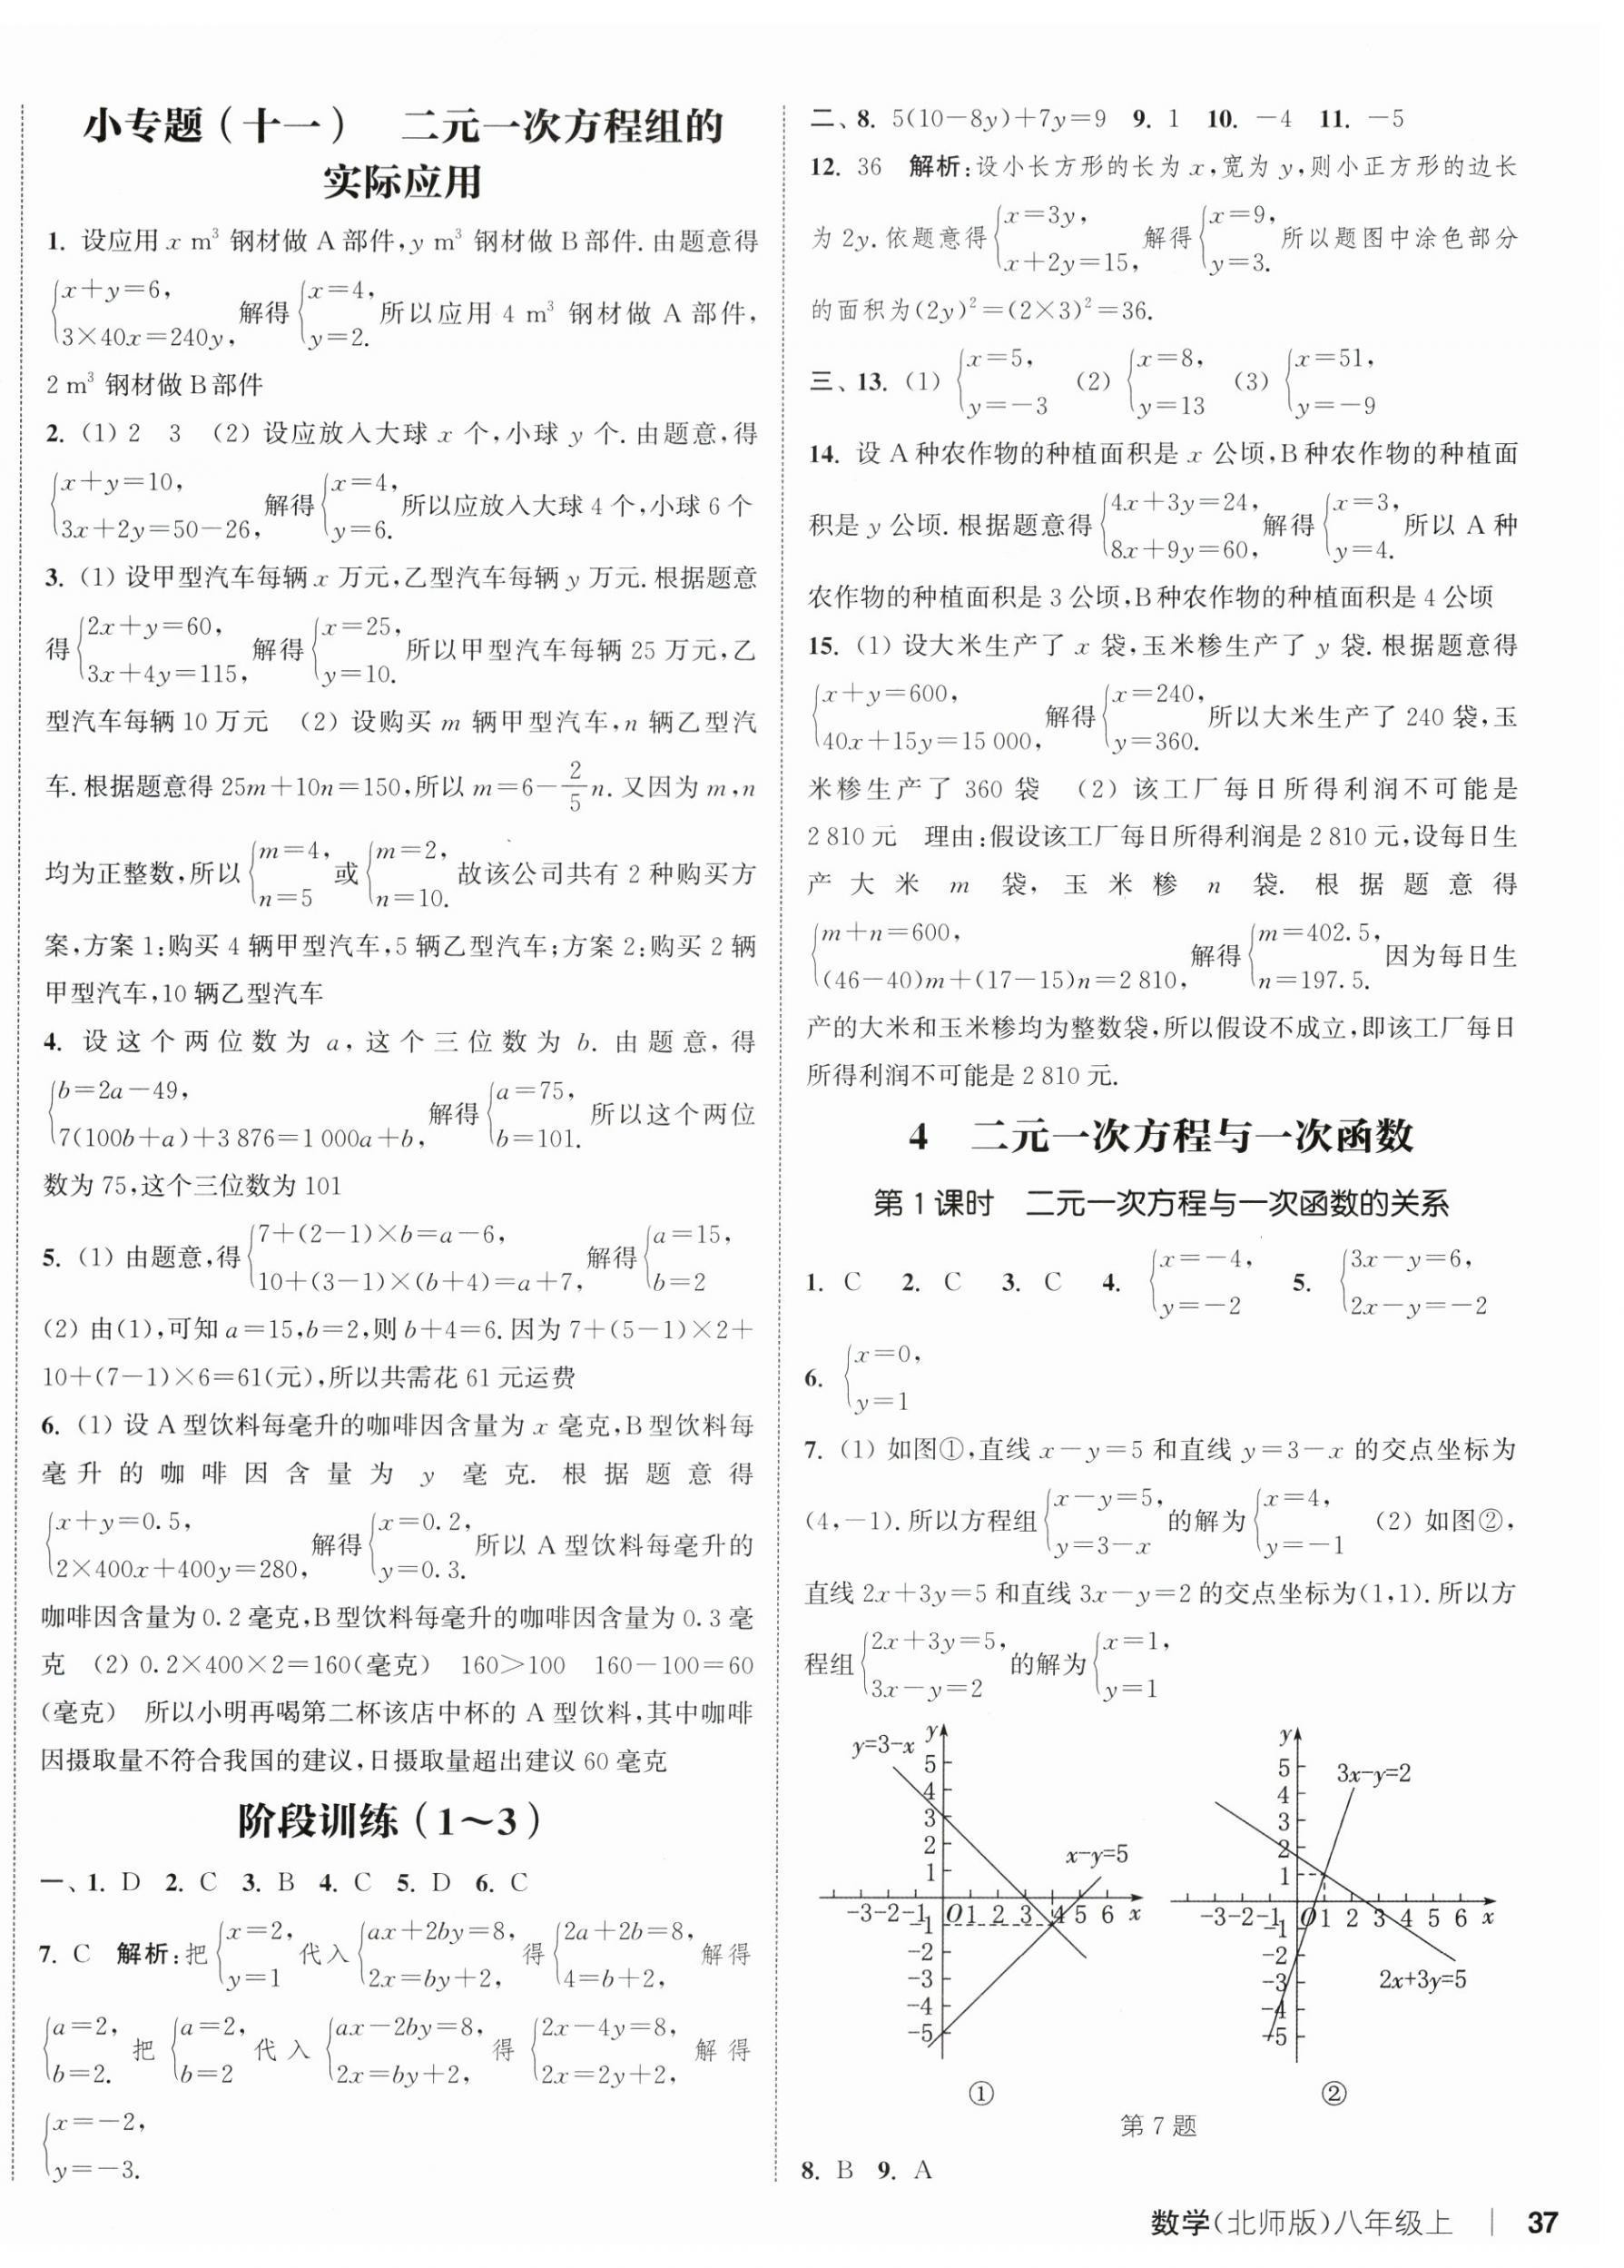 小专题(十一) 二元一次方程组的
实际应用
1. 设应用 x m³ 钢材做 A 部件,y m³ 钢材做 B 部件. 由题意得
{x+y=6, 3×40x=240y, 解得 {x=4, y=2. 所以应用 4 m³ 钢材做 A 部件,
2 m³ 钢材做 B 部件
2. (1) 2 3 (2) 设应放入大球 x 个,小球 y 个. 由题意,得
{x+y=10, 3x+2y=50-26, 解得 {x=4, y=6. 所以应放入大球 4 个,小球 6 个
3. (1) 设甲型汽车每辆 x 万元,乙型汽车每辆 y 万元. 根据题意
得 {2x+y=60, 3x+4y=115, 解得 {x=25, y=10. 所以甲型汽车每辆 25 万元,乙
型汽车每辆 10 万元 (2) 设购买 m 辆甲型汽车,n 辆乙型汽
车. 根据题意得 25m+10n=150,所以 m=6-2/5n. 又因为 m,n
均为正整数,所以 {m=4, n=5 或 {m=2, n=10. 故该公司共有 2 种购买方
案,方案 1:购买 4 辆甲型汽车,5 辆乙型汽车;方案 2:购买 2 辆
甲型汽车,10 辆乙型汽车
4. 设这个两位数为 a,这个三位数为 b. 由题意,得
{b=2a-49, 7(100b+a)+3 876=1 000a+b, 解得 {a=75, b=101. 所以这个两位
数为 75,这个三位数为 101
5. (1) 由题意,得 {7+(2-1)×b=a-6, 10+(3-1)×(b+4)=a+7, 解得 {a=15, b=2
(2) 由(1),可知 a=15,b=2,则 b+4=6. 因为 7+(5-1)×2+
10+(7-1)×6=61(元),所以共需花 61 元运费
6. (1) 设 A 型饮料每毫升的咖啡因含量为 x 毫克,B 型饮料每
毫升的咖啡因含量为 y 毫克. 根据题意得
{x+y=0.5, 2×400x+400y=280, 解得 {x=0.2, y=0.3. 所以 A 型饮料每毫升的
咖啡因含量为 0.2 毫克,B 型饮料每毫升的咖啡因含量为 0.3 毫
克 (2) 0.2×400×2=160(毫克) 160>100 160-100=60
(毫克) 所以小明再喝第二杯该店中杯的 A 型饮料,其中咖啡
因摄取量不符合我国的建议,日摄取量超出建议 60 毫克
阶段训练(1~3)
一、1. D 2. C 3. B 4. C 5. D 6. C
7. C 解析:把 {x=2, y=1 代入 {ax+2by=8, 2x=by+2, 得 {2a+2b=8, 4=b+2, 解得
{a=2, b=2. 把 {a=2, b=2 代入 {ax-2by=8, 2x=by+2, 得 {2x-4y=8, 2x=2y+2, 解得
{x=-2, y=-3.
二、8. 5(10-8y)+7y=9 9. 1 10. -4 11. -5
12. 36 解析:设小长方形的长为 x,宽为 y,则小正方形的边长
为 2y. 依题意得 {x=3y, x+2y=15, 解得 {x=9, y=3. 所以题图中涂色部分
的面积为(2y)²=(2×3)²=36.
三、13. (1) {x=5, y=-3 (2) {x=8, y=13 (3) {x=51, y=-9
14. 设 A 种农作物的种植面积是 x 公顷,B 种农作物的种植面
积是 y 公顷. 根据题意得 {4x+3y=24, 8x+9y=60, 解得 {x=3, y=4. 所以 A 种
农作物的种植面积是 3 公顷,B 种农作物的种植面积是 4 公顷
15. (1) 设大米生产了 x 袋,玉米糁生产了 y 袋. 根据题意得
{x+y=600, 40x+15y=15 000, 解得 {x=240, y=360. 所以大米生产了 240 袋,玉
米糁生产了 360 袋 (2) 该工厂每日所得利润不可能是
2 810 元 理由:假设该工厂每日所得利润是 2 810 元,设每日生
产大米 m 袋,玉米糁 n 袋. 根据题意得
{m+n=600, (46-40)m+(17-15)n=2 810, 解得 {m=402.5, n=197.5. 因为每日生
产的大米和玉米糁均为整数袋,所以假设不成立,即该工厂每日
所得利润不可能是 2 810 元.
4 二元一次方程与一次函数
第 1 课时 二元一次方程与一次函数的关系
1. C 2. C 3. C 4. {x=-4, y=-2 5. {3x-y=6, 2x-y=-2
6. {x=0, y=1
7. (1) 如图①,直线 x-y=5 和直线 y=3-x 的交点坐标为
(4,-1). 所以方程组 {x-y=5, y=3-x 的解为 {x=4, y=-1 (2) 如图②,
直线 2x+3y=5 和直线 3x-y=2 的交点坐标为(1,1). 所以方
程组 {2x+3y=5, 3x-y=2 的解为 {x=1, y=1
y=3-x
y
5
4
3
2
1
x-y=5
-3-2-1 O 1 2 3 4 5 6 x
-1
-2
-3
-4
-5
①
y
5
4
3
2
1
3x-y=2
-3-2-1 O 1 2 3 4 5 6 x
-1
-2
-3
-4
-5
2x+3y=5
②
第 7 题
8. B 9. A
数学(北师版)八年级上 | 37